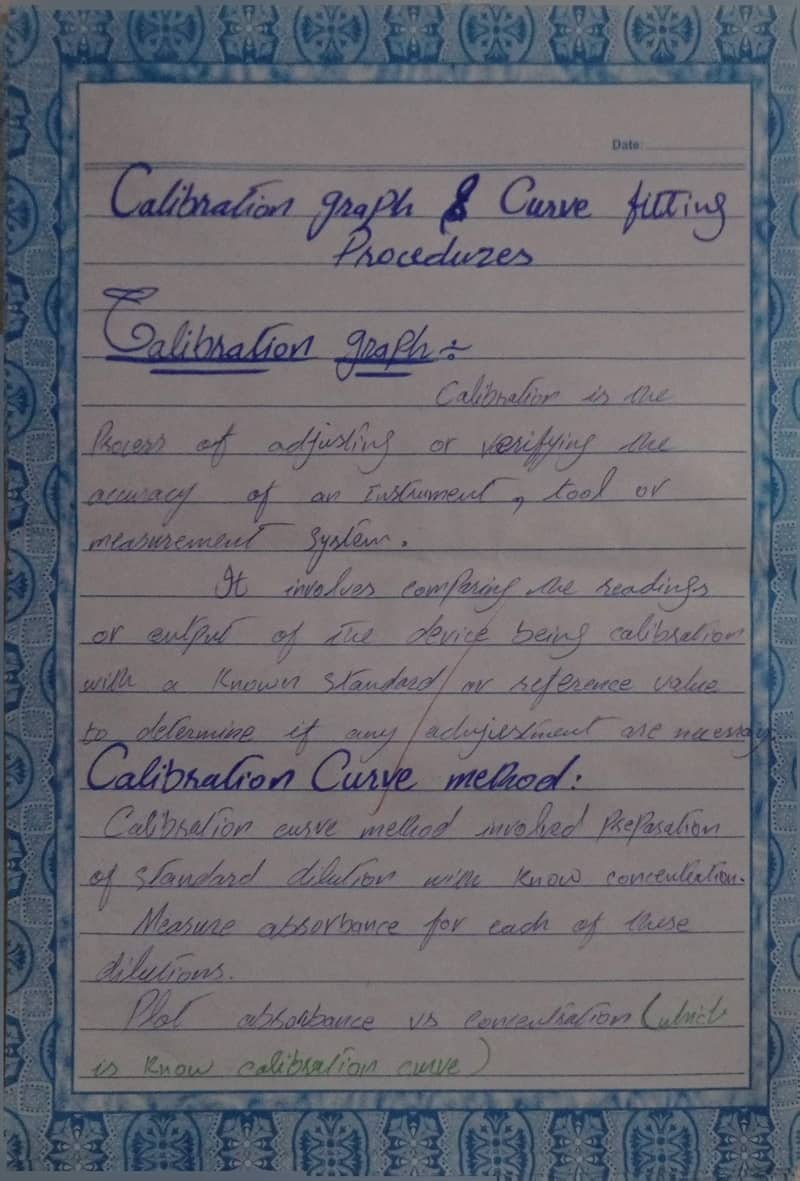 Date:
Calibration graph & Curve fitting
Procedures
Calibration graph:-
Calibration is the
Process of adjusting or verifying the
accuracy of an Instrument, tool or
measurement system.
It involves comparing the readings
or output of the device being calibration
with a known standard or reference value
to determine if any adjustment are necessary
Calibration Curve method:
Calibration curve method involved Preparation
of standard dilution with know concentration.
Measure absorbance for each of these
dilutions.
Plot absorbance vs concentration (which
is know calibration curve)